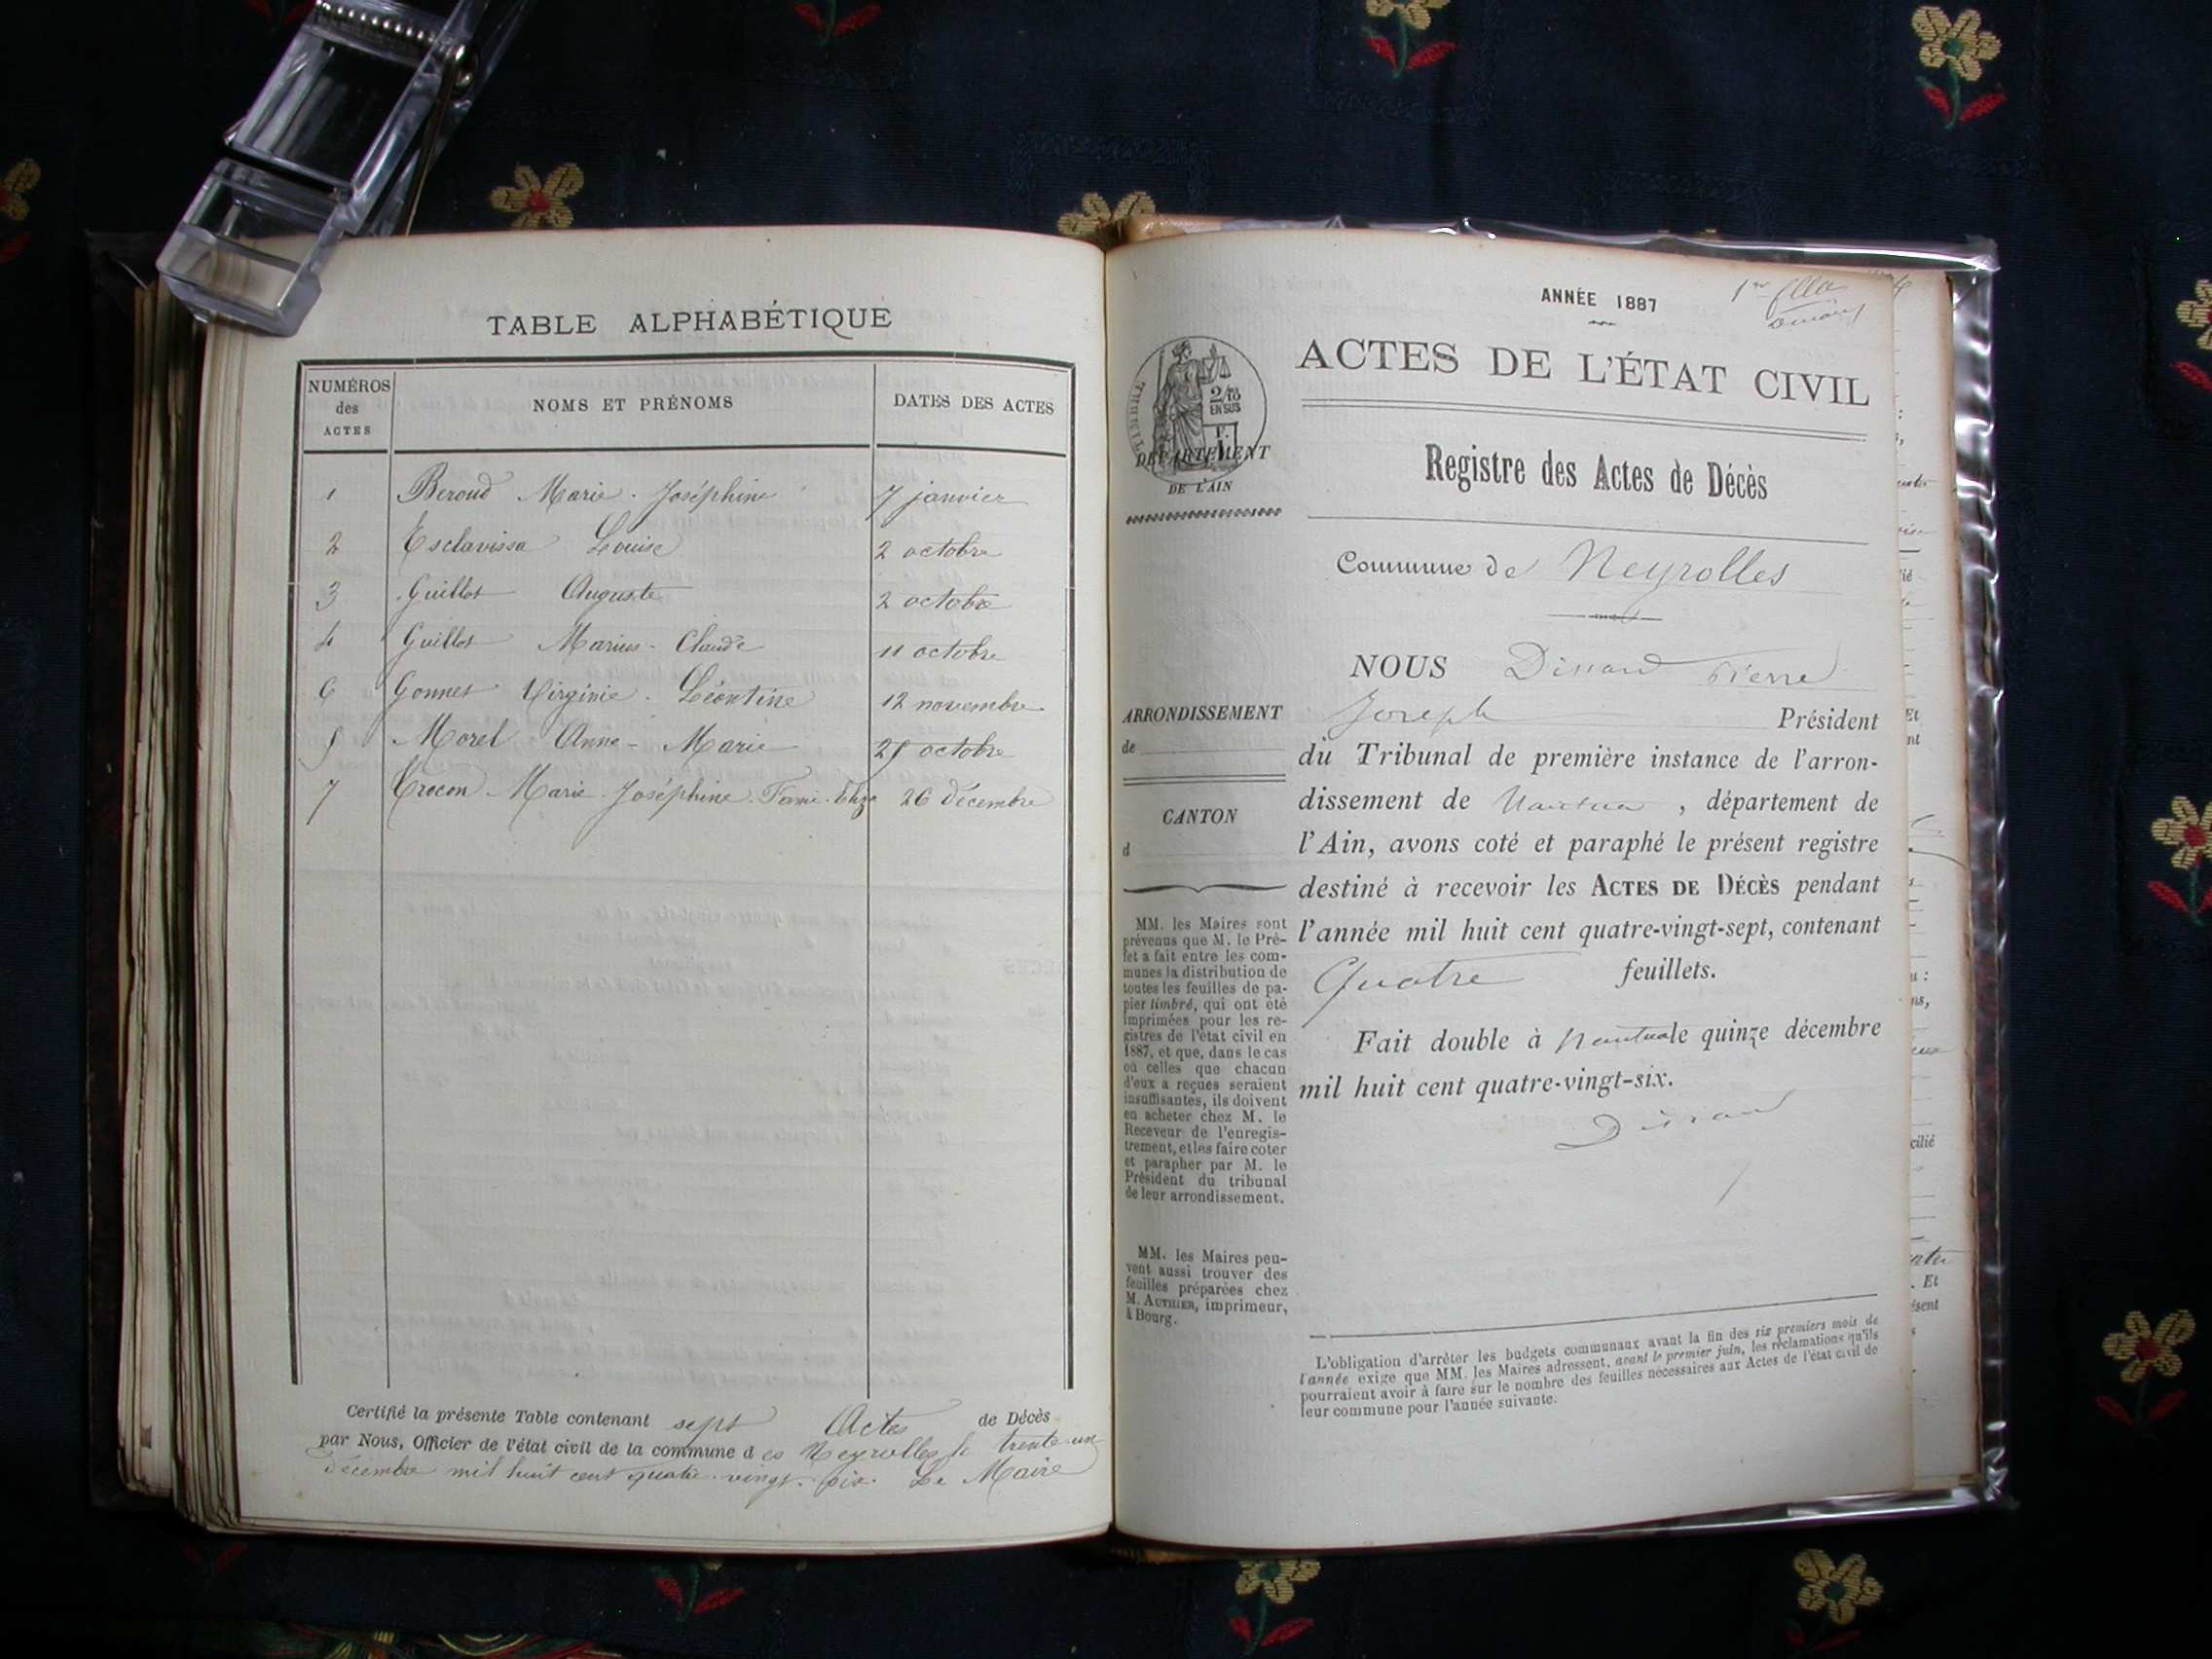 TABLE ALPHABÉTIQUE
NUMÉROS des ACTES
NOMS ET PRÉNOMS
DATES DES ACTES
1 Beroud Marie - Joséphine 7 janvier
2 Esclavissa Louise 2 octobre
3 Guillot Auguste 2 octobre
4 Guillot Marius - Claude 11 octobre
6 Gonnet Virginie - Léontine 12 novembre
5 Morel Anne - Marie 25 octobre
7 Marie - Joséphine 26 décembre
Certifié la présente Table contenant sept Actes de Décès
par Nous, Officier de l'état civil de la commune d es Neyrolles le trente-un
décembre mil huit cent quatre-vingt-six. Le Maire
ANNÉE 1887
ACTES DE L'ÉTAT CIVIL
TIMBRE
2/10
EN SUS
DÉPARTEMENT
DE L'AIN
Registre des Actes de Décès
Commune de Neyrolles
NOUS Pierre
Joseph Président
du Tribunal de première instance de l'arron-
dissement de Nantua, département de
l'Ain, avons coté et paraphé le présent registre
destiné à recevoir les ACTES DE DÉCÈS pendant
l'année mil huit cent quatre-vingt-sept, contenant
Quatre feuillets.
Fait double à Nantua le quinze décembre
mil huit cent quatre-vingt-six.
ARRONDISSEMENT
de
CANTON
d
MM. les Maires sont
prévenus que M. le Pré-
fet a fait entre les com-
munes la distribution de
toutes les feuilles de pa-
pier timbré, qui ont été
imprimées pour les re-
gistres de l'état civil en
1887, et que, dans le cas
où celles que chacun
d'eux a reçues seraient
insuffisantes, ils doivent
en acheter chez M. le
Receveur de l'enregis-
trement, et les faire coter
et parapher par M. le
Président du tribunal
de leur arrondissement.
MM. les Maires peu-
vent aussi trouver des
feuilles préparées chez
M. AUTHIER, imprimeur,
à Bourg.
L'obligation d'arrêter les budgets communaux avant la fin des six premiers mois de
l'année exige que MM. les Maires adressent, avant le premier juin, les réclamations qu'ils
pourraient avoir à faire sur le nombre des feuilles nécessaires aux Actes de l'état civil de
leur commune pour l'année suivante.